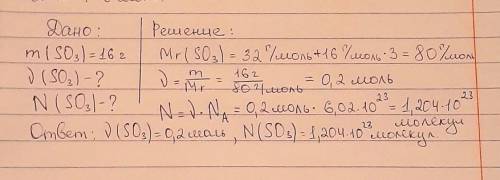 Дано: Решение:
m(SO₃)=16 г Mr(SO₃) = 32 г/моль+16 г/моль·3 = 80 г/моль
ν(SO₃)-? ν = m/Mr = 16 г/80 г/моль = 0,2 моль
N(SO₃)-? N = ν·N_A = 0,2 моль·6,02·10²³ = 1,204·10²³ молекул
Ответ: ν(SO₃)=0,2 моль, N(SO₃)=1,204·10²³ молекул.